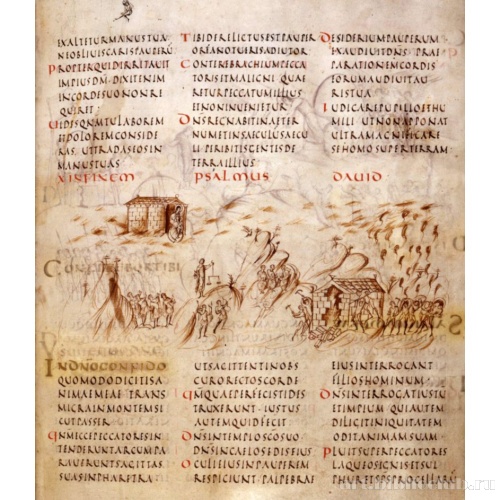 EXALTETURMANUSTUA·
NEOBLIUISCARISPAUPERU
PROPTERQUIDIRRITAUIT
IMPIUSDM·DIXITENIM
INCORDESUONONRE
QUIRET·
UIDESQNMTULABOREM
ETDOLOREMCONSIDE
RAS·UTTRADASEOSIN
MANUSTUAS
TIBIDERELICTUSESTPAUPER
ORFANOTUERISADIUTOR
CONTEREBRACHIUMPECCA
TORISETMALIGNI QUAE
RETURPECCATUMILLIUS
ETNONINUENIETUR
DNSREGNABITINAETER
NUMETINSAECULUSAECU
LI PERIBITISGENTESDE
TERRAILLIUS
DESIDERIUMPAUPERUM
EXAUDIUITDNS PRAE
PARATIONEMCORDIS
EORUMAUDIUITAU
RISTUA
IUDICAREPUPILLOETHU
MILI UTNONAPPONAT
ULTRAMAGNIFICARE
SEHOMOSUPERTERRAM
XINFINEM PSALMUS DAUID
INDNOCONFIDO
QUOMODODICITISA
NIMAEMEAE TRANS
MIGRAINMONTEMSI
CUTPASSER
QNMECCEPECCATORESIN
TENDERUNTARCUMPA
RAUERUNTSAGITTAS
SUASINPHARETRA
UTSAGITTENTINOBS
CURORECTOSCORDE
QNMQUAEPERFECISTIDES
TRUXERUNT·IUSTUS
AUTEMQUIDFECIT
DNSINTEMPLOSCOSUO
DNSINCAELOSEDISEIUS
OCULIEIUSINPAUPEREM
RESPICIUNT PALPEBRAE
EIUSINTERROGANT
FILIOSHOMINUM
DNSINTERROGATIUSTU
ETIMPIUM QUIAUTEM
DILIGITINIQUITATEM
ODITANIMAMSUAM
PLUITSUPERPECCATORES
LAQUEOSIGNISETSUL
PHURETSPSPROCELLARU